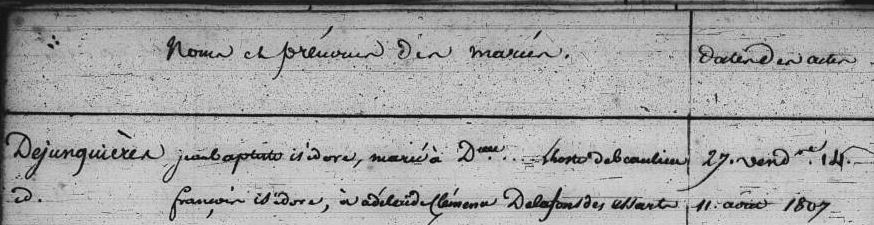 Noms et prénoms des mariés. dates des actes
Dejunquières jean baptiste isidore, marié à Dlle... Lhoste de beaulieu 27. vendre. 14.
id. françois isidore, à adélaïde Clémence Delafons des Essarts 11. août 1807